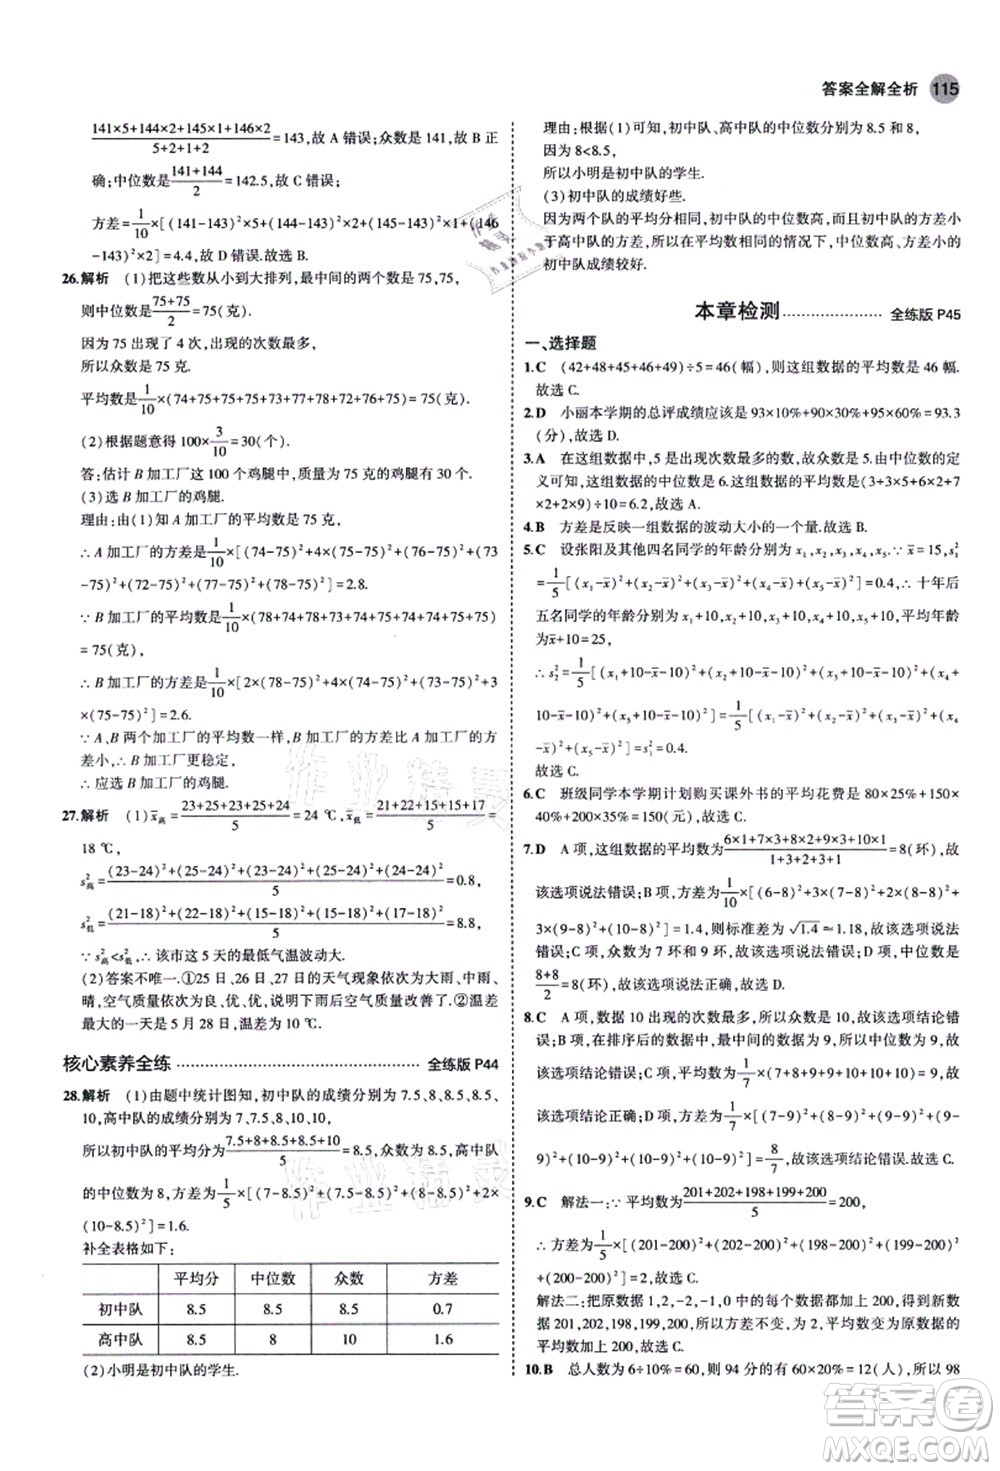 答案全解全析 115
(141×5+144×2+145×1+146×2)/(5+2+1+2)=143,故 A 错误;众数是 141,故 B 正
确;中位数是(141+144)/2=142.5,故 C 错误;
方差=1/10×[(141-143)²×5+(144-143)²×2+(145-143)²×1+(146
-143)²×2]=4.4,故 D 错误.故选 B.
26.解析 (1)把这些数从小到大排列,最中间的两个数是 75,75,
则中位数是(75+75)/2=75(克).
因为 75 出现了 4 次,出现的次数最多,
所以众数是 75 克.
平均数是1/10×(74+75+75+75+73+77+78+72+76+75)=75(克).
(2)根据题意得 100×3/10=30(个).
答:估计 B 加工厂这 100 个鸡腿中,质量为 75 克的鸡腿有 30 个.
(3)选 B 加工厂的鸡腿.
理由:由(1)知 A 加工厂的平均数是 75 克,
∴ A 加工厂的方差是1/10×[(74-75)²+4×(75-75)²+(76-75)²+(73
-75)²+(72-75)²+(77-75)²+(78-75)²]=2.8.
∵ B 加工厂的平均数是1/10×(78+74+78+73+74+75+74+74+75+75)
=75(克),
∴ B 加工厂的方差是1/10×[2×(78-75)²+4×(74-75)²+(73-75)²+3
×(75-75)²]=2.6.
∵ A、B 两个加工厂的平均数一样,B 加工厂的方差比 A 加工厂的方
差小,∴ B 加工厂的鸡腿更稳定,
∴ 应选 B 加工厂的鸡腿.
27.解析 (1)x̄高=(23+25+23+25+24)/5=24 ℃,x̄低=(21+22+15+15+17)/5=
18 ℃,
s²高=((23-24)²+(25-24)²+(23-24)²+(25-24)²+(24-24)²)/5=0.8,
s²低=((21-18)²+(22-18)²+(15-18)²+(15-18)²+(17-18)²)/5=8.8,
∵ s²高<s²低,∴ 该市这 5 天的最低气温波动大.
(2)答案不唯一.①25 日、26 日、27 日的天气现象依次为大雨、中雨、
晴,空气质量依次为良、优、优,说明下雨后空气质量改善了.②温差
最大的一天是 5 月 28 日,温差为 10 ℃.
核心素养全练 全练版 P44
28.解析 (1)由题中统计图知,初中队的成绩分别为 7.5、8、8.5、8.5、
10,高中队的成绩分别为 7、7.5、8、10、10,
所以初中队的平均分为(7.5+8+8.5+8.5+10)/5=8.5,众数为 8.5,高中队
的中位数为 8,方差为1/5×[(7-8.5)²+(7.5-8.5)²+(8-8.5)²+2×
(10-8.5)²]=1.6.
补全表格如下:
平均分 中位数 众数 方差
初中队 8.5 8.5 8.5 0.7
高中队 8.5 8 10 1.6
(2)小明是初中队的学生.
理由:根据(1)可知,初中队、高中队的中位数分别为 8.5 和 8,
因为 8<8.5,
所以小明是初中队的学生.
(3)初中队的成绩好些.
因为两个队的平均分相同,初中队的中位数高,而初中队的方差小
于高中队的方差,所以在平均数相同的情况下,中位数高、方差小的
初中队成绩较好.
本章检测 全练版 P45
一、选择题
1.C (42+48+45+46+49)÷5=46(幅),则这组数据的平均数是 46 幅.
故选 C.
2.D 小丽本学期的总评成绩应该是 93×10%+90×30%+95×60%=93.3
(分),故选 D.
3.A 在这组数据中,5 是出现次数最多的,故众数是 5.由中位数的定
义可知,这组数据的中位数是 6.这组数据的平均数是(3+3×5+2×6+7
×2+2×9)÷10=6.2,故选 A.
4.B 方差是反映一组数据的波动大小的一个量.故选 B.
5.C 设张阳及其他四名同学的年龄分别为 x₁,x₂,x₃,x₄,x₅.∵ x̄=15,s₁²
=1/5[(x₁-x̄)²+(x₂-x̄)²+(x₃-x̄)²+(x₄-x̄)²+(x₅-x̄)²]=0.4,∴ 十年后
五名同学的年龄分别为 x₁+10,x₂+10,x₃+10,x₄+10,x₅+10,平均年龄
为x̄+10=25,
∴ s₂²=1/5[(x₁+10-x̄-10)²+(x₂+10-x̄-10)²+(x₃+10-x̄-10)²+(x₄+
10-x̄-10)²+(x₅+10-x̄-10)²]=1/5[(x₁-x̄)²+(x₂-x̄)²+(x₃-x̄)²+(x₄
-x̄)²+(x₅-x̄)²]=s₁²=0.4.
故选 C.
6.C 班级同学本学期计划购买课外书的平均花费是 80×25%+150×
40%+200×35%=150(元),故选 C.
7.D A 项,这组数据的平均数为(6×1+7×3+8×2+9×3+10×1)/(1+3+2+3+1)=8(环),故
该选项说法错误;B 项,方差为1/10×[(6-8)²+3×(7-8)²+2×(8-8)²+
3×(9-8)²+(10-8)²]=1.4,则标准差为√1.4≈1.18,故该选项说法
错误;C 项,众数为 7 环和 9 环,故该选项说法错误;D 项,中位数为
(8+8)/2=8(环),故该选项说法正确.故选 D.
8.C A 项,数据 10 出现的次数最多,所以众数是 10,故该选项结论错
误;B 项,在排序后的数据中,10 在最中间,所以中位数为 10,故该选
项结论错误;C 项,平均数为1/7×(7+8+9+9+10+10+10)=9,故
该选项结论正确;D 项,方差为1/7×[(7-9)²+(8-9)²+(9-9)²+(9-
9)²+(10-9)²+(10-9)²+(10-9)²]=8/7,故该选项结论错误.故选 C.
9.C 解法一:∵ 平均数为(201+202+198+199+200)/5=200,
∴ 方差为1/5×[(201-200)²+(202-200)²+(198-200)²+(199-200)²+
(200-200)²]=2,故选 C.
解法二:把原数据 1,2,-2,-1,0 中的每个数据都加上 200,得到新数
据 201,202,198,199,200,所以方差不变,新数据的平均数为原数据的
平均数加上 200,故选 C.
10.B 总人数为 6÷10%=60,则 94 分的有 60×20%=12(人),所以 98
作业精灵
作业精灵
答案
MXQE.COM